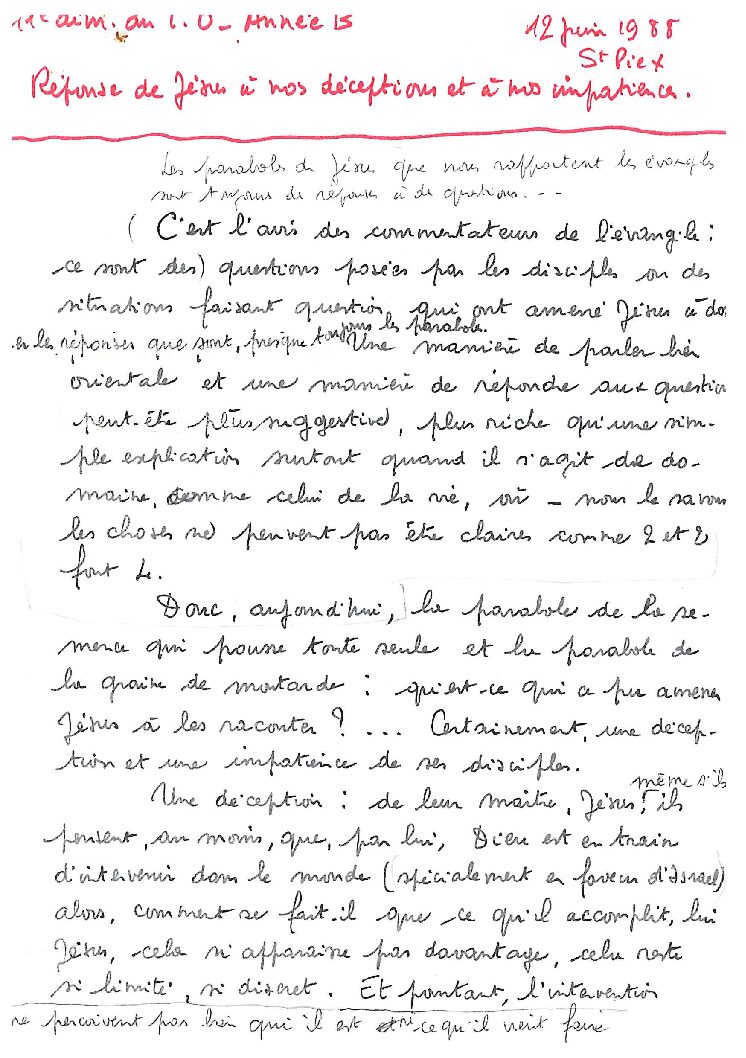 11e dim. du T.O - Année B
12 Juin 1988
St Pie X
Réponse de Jésus à nos déceptions et à nos impatiences.
Les paraboles de Jésus que nous rapportent les évangiles
sont toujours des réponses à des questions...
( C'est l'avis des commentateurs de l'évangile :
ce sont des) questions posées par les disciples ou des
situations faisant question qui ont amené Jésus à do
en les réponses que sont, presque toujours les paraboles.
Une manière de parler bien
orientale et une manière de répondre aux question
peut-être plus suggestive, plus riche qu'une sim-
ple explication surtout quand il s'agit de do-
maine, comme celui de la vie, où - nous le savons
les choses ne peuvent pas être claires comme 2 et 2
font 4.
Donc, aujourd'hui, la parabole de la se-
mence qui pousse toute seule et la parabole de
la graine de moutarde : qu'est-ce qui a pu amener
Jésus à les raconter ? ... Certainement, une décep-
tion et une impatience de ses disciples.
même s'ils
Une déception : de leur maître, Jésus, ils
pensent, au moins, que, par lui, Dieu est en train
d'intervenir dans le monde (spécialement en faveur d'Israël)
alors, comment se fait-il que ce qu'il accomplit, lui
Jésus, cela n'apparaisse pas davantage, cela reste
si limité, si discret. Et pourtant, l'intervention
ne perçoivent pas bien qui il est et ce qu'il vient faire